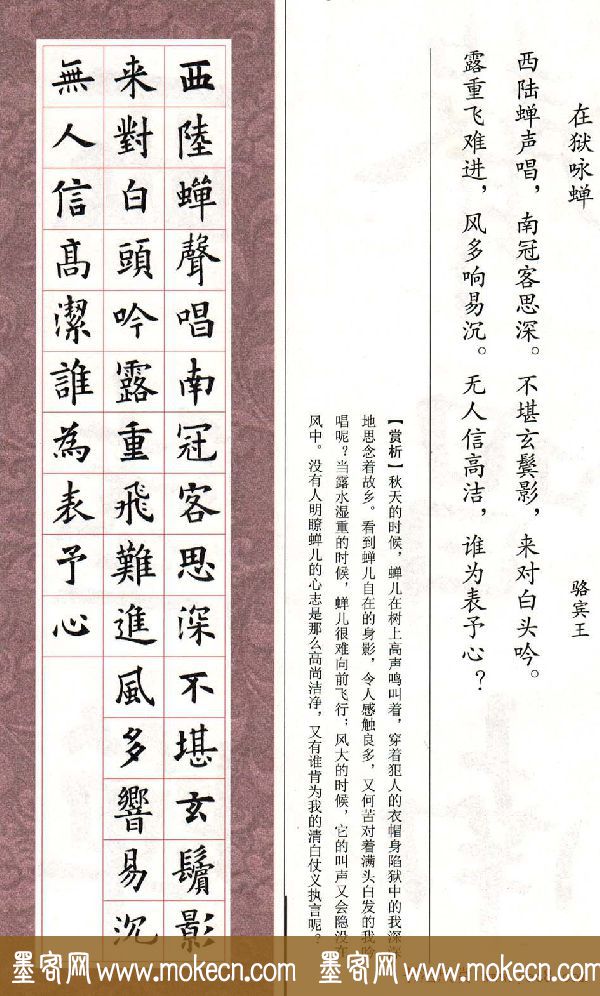 在狱咏蝉
骆宾王
西陆蝉声唱，南冠客思深。不堪玄鬓影，来对白头吟。
露重飞难进，风多响易沉。无人信高洁，谁为表予心？
【赏析】秋天的时候，蝉儿在树上高声鸣叫着，穿着犯人的衣帽身陷狱中的我深深
地思念着故乡。看到蝉儿自在的身影，令人感触良多，又何苦对着满头白发的我吟
唱呢？当露水湿重的时候，蝉儿很难向前飞行；风大的时候，它的叫声又会隐没在
风中。没有人明瞭蝉儿的心志是那么高尚洁净，又有谁肯为我的清白仗义执言呢？
西陸蟬聲唱南冠客思深不堪玄鬢影
来對白頭吟露重飛難進風多響易沉
無人信高潔誰為表予心
墨客网 www.mokecn.com 墨客网 www.mokecn.com